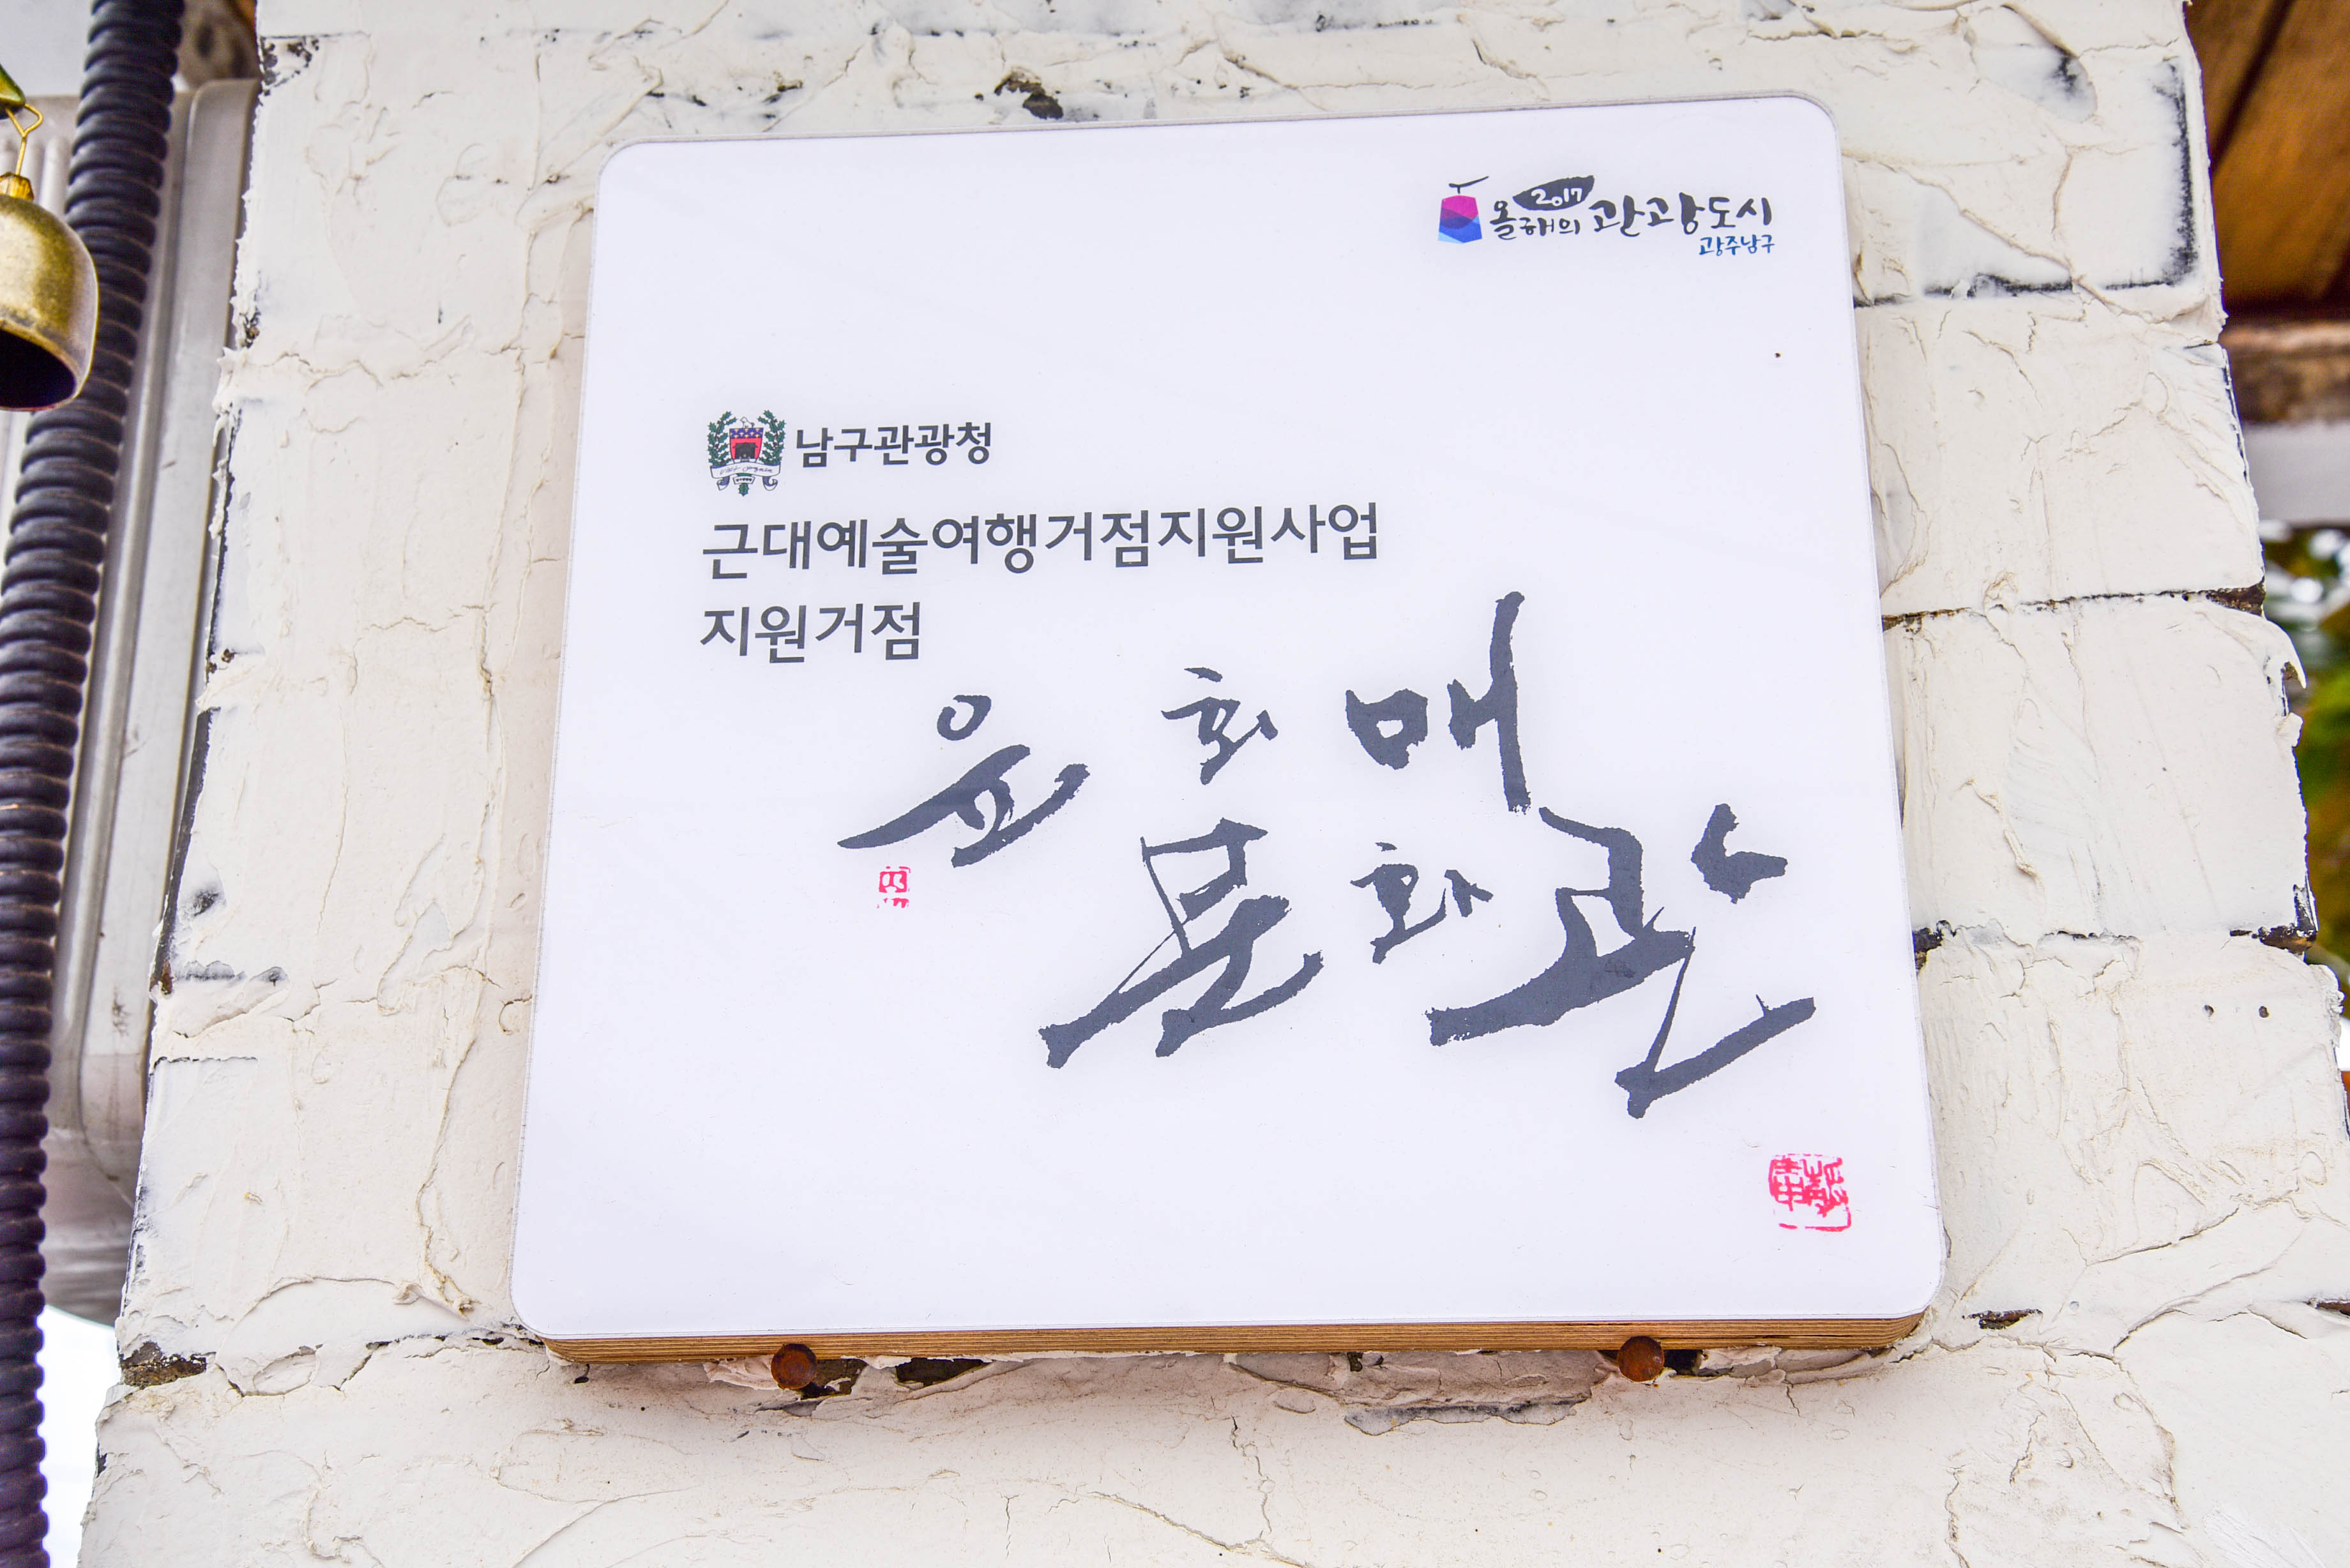 2017
올해의 관광도시
광주남구
남구관광청
근대예술여행거점지원사업
지원거점
윤회매
문화관